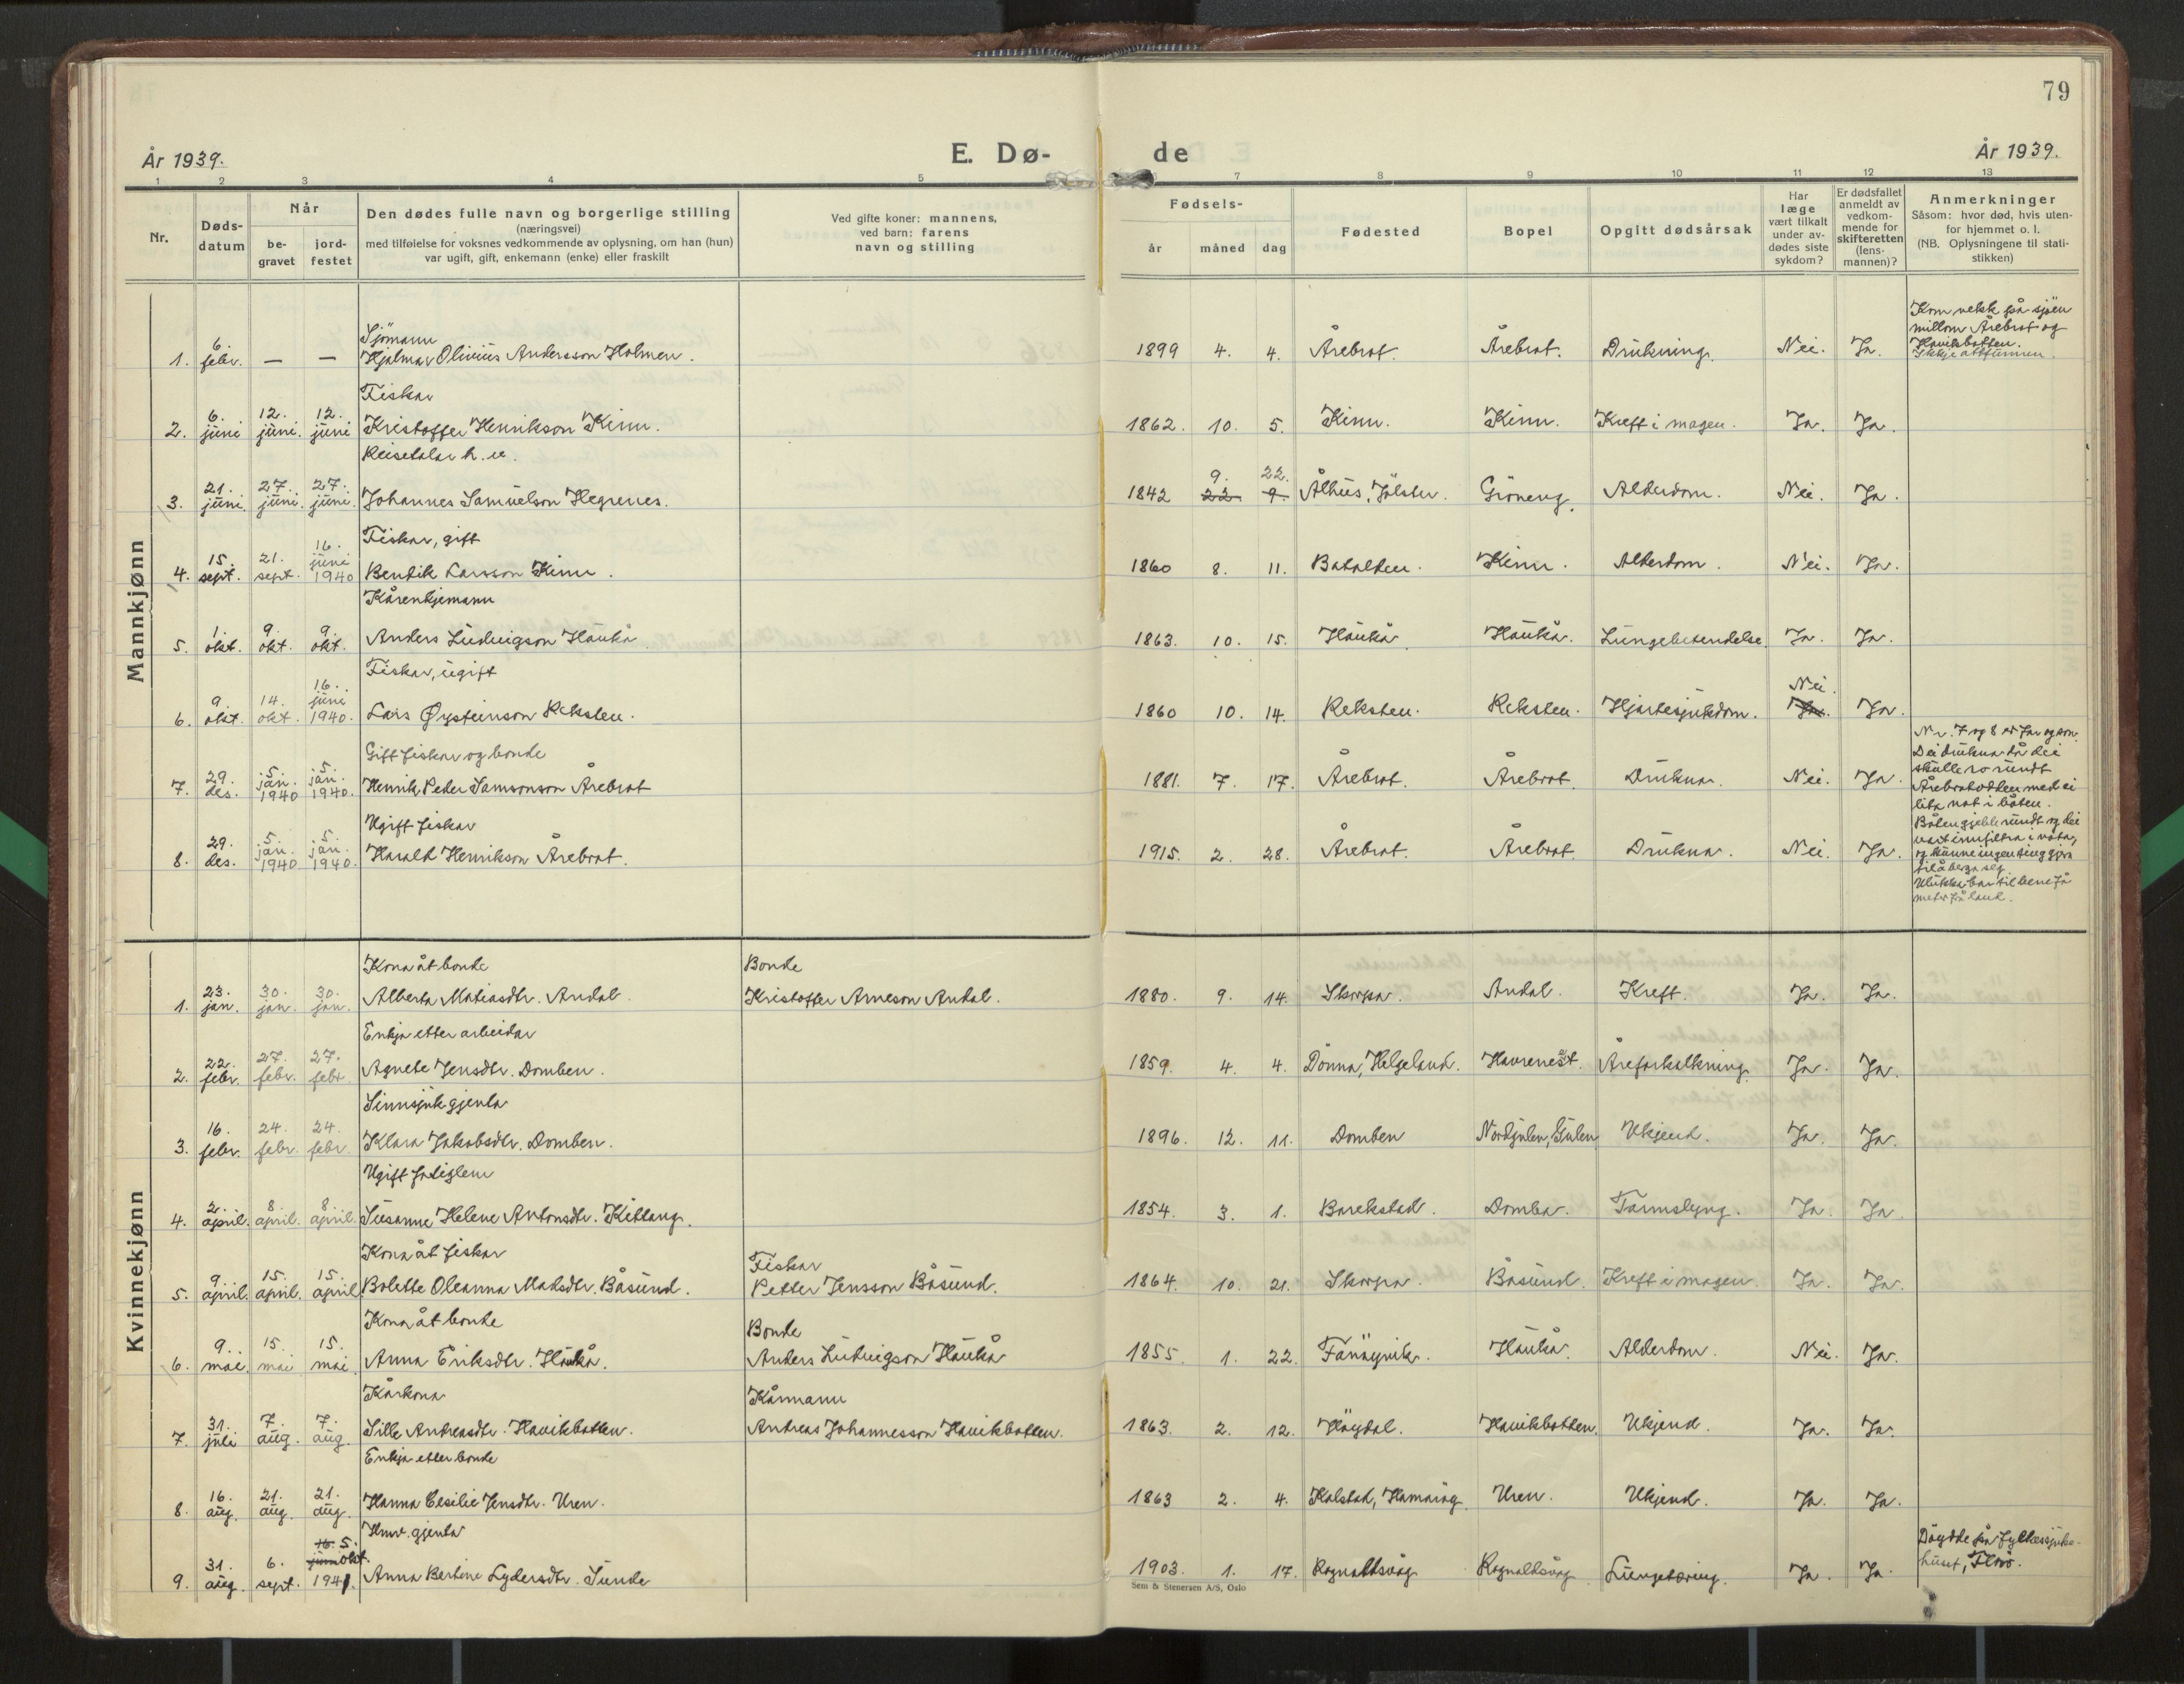 79
År 1939. E. Dø- de År 1939.
1 2 3 4 5 7 8 9 10 11 12 13
Nr.
Døds-
datum
Når
be-
gravet
jord-
festet
Den dødes fulle navn og borgerlige stilling
(næringsvei)
med tilføielse for voksnes vedkommende av oplysning, om han (hun)
var ugift, gift, enkemann (enke) eller fraskilt
Ved gifte koner: mannens,
ved barn: farens
navn og stilling
Fødsels-
år måned dag
Fødested
Bopel
Opgitt dødsårsak
Har
læge
vært tilkalt
under av-
dødes siste
sykdom?
Er dødsfallet
anmeldt av
vedkom-
mende for
skifteretten
(lens-
mannen)?
Anmerkninger
Såsom: hvor død, hvis uten-
for hjemmet o. l.
(NB. Oplysningene til stati-
stikken)
Mannkjønn
Sjömann
1. 6. febr. — — Hjalmar Olivius Andersson Holmen. 1899 4. 4. Årebrot. Årebrot. Drukning. Nei. Ja.
Kom vekk på sjöen
millom Årebrot og
Havikbotten.
Ikkje attfunnen.
Fiskar
2. 6. juni 12. juni. 12. juni Kristoffer Henrikson Kinn. 1862. 10. 5. Kinn. Kinn. Kreft i magen. Ja. Ja.
Reisetalar h. v.
3. 21. juni. 27. juni. 27. juni. Johannes Samuelson Hegrenes. 1842 9. 22 22. 9. Ålhus, Jölster. Gröneng. Alderdom. Nei. Ja.
Fiskar, gift
4. 15. sept. 21. sept. 16. juni 1940 Bendik Larsson Kinn. 1860 8. 11. Batalden. Kinn. Alderdom. Nei. Ja.
Kårenkjemann
5. 1. okt. 9. okt. 9. okt. Anders Ludvigson Haukå 1863. 10. 15. Haukå. Haukå. Lungebetendelse. Ja. Ja.
Fiskar, ugift
6. 9. okt. 14. okt. 16. juni 1940. Lars Øysteinson Reksten. 1860 10. 14. Reksten. Reksten. Hjartesjukdom. Nei. Ja. Ja.
Gift fiskar og bonde
7. 29. des. 5. jan. 1940 5. jan. 1940. Henrik Peder Samsonson Årebrot 1881. 7. 17. Årebrot. Årebrot. Drukna. Nei. Ja.
Ugift fiskar
8. 29. des. 5. jan. 1940 5. jan. 1940. Harald Henrikson Årebrot. 1915. 2. 28. Årebrot. Årebrot. Drukna. Nei. Ja.
Nr. 7 og 8 er far og son.
Dei drukna då dei
skulle ro rundt
Årebrotodden med ei
lita not i båten.
Båten gjekk rundt og dei
vart innfiltra i nota,
og kunne ingenting gjera
til å berga seg.
Ulukka bar til berre få
meter frå land.
Kvinnekjønn
Kona åt bonde Bonde
1. 23. jan. 30. jan. 30. jan. Alberta Matiasdtr. Andal. Kristoffer Arneson Andal. 1880. 9. 14. Skorpa. Andal. Kreft. Ja. Ja.
Enkja etter arbeidar
2. 22. febr. 27. febr. 27. febr. Agnete Jensdtr. Domben. 1859. 4. 4. Dönna, Helgeland. Havrenest. Åreforkalkning. Ja. Ja.
Sinnsjuk gjenta
3. 16. febr. 24. febr. 24. febr. Klara Jakobsdtr. Domben. 1896. 12. 11. Domben Nordgulen, Gulen Ukjend. Ja. Ja.
Ugift fatiglem
4. 2. april. 8. april. 8. april. Susanne Helene Antonsdtr. Kitlang. 1854. 3. 1. Barekstad. Domba. Tarmslyng. Ja. Ja.
Kona åt fiskar Fiskar
5. 9. april. 15. april. 15. april. Bolette Oleanna Matsdtr. Båsund. Petter Jensson Båsund. 1864. 10. 21. Skorpa. Båsund. Kreft i magen. Ja. Ja.
Kona åt bonde Bonde
6. 9. mai. 15. mai 15. mai. Anna Eriksdtr. Haukå. Anders Ludvigson Haukå 1855. 1. 22. Fanöyvik. Haukå. Alderdom. Nei. Ja.
Kårkona Kårmann
7. 31. juli 7. aug. 7. aug. Sille Andreasdtr. Havikbotten. Andreas Johannesson Havikbotten. 1863. 2. 12. Höydal. Havikbotten. Ukjend. Ja. Ja.
Enkja etter bonde
8. 16. aug. 21. aug. 21. aug. Hanna Cesilie Jensdtr. Uren. 1863 2. 4. Kalstad, Hamaröy. Uren. Ukjend. Ja. Ja.
Husv. gjenta
9. 31. aug. 6. sept. 16. juni 5. okt. 1941. Anna Bertine Lydersdtr. Sunde 1903. 1. 17. Rognaldsvåg Rognaldsvåg Lungetæring. Ja. Ja.
Döydde på fylkessjuke-
huset, Florö.
Sem & Stenersen A/S, Oslo